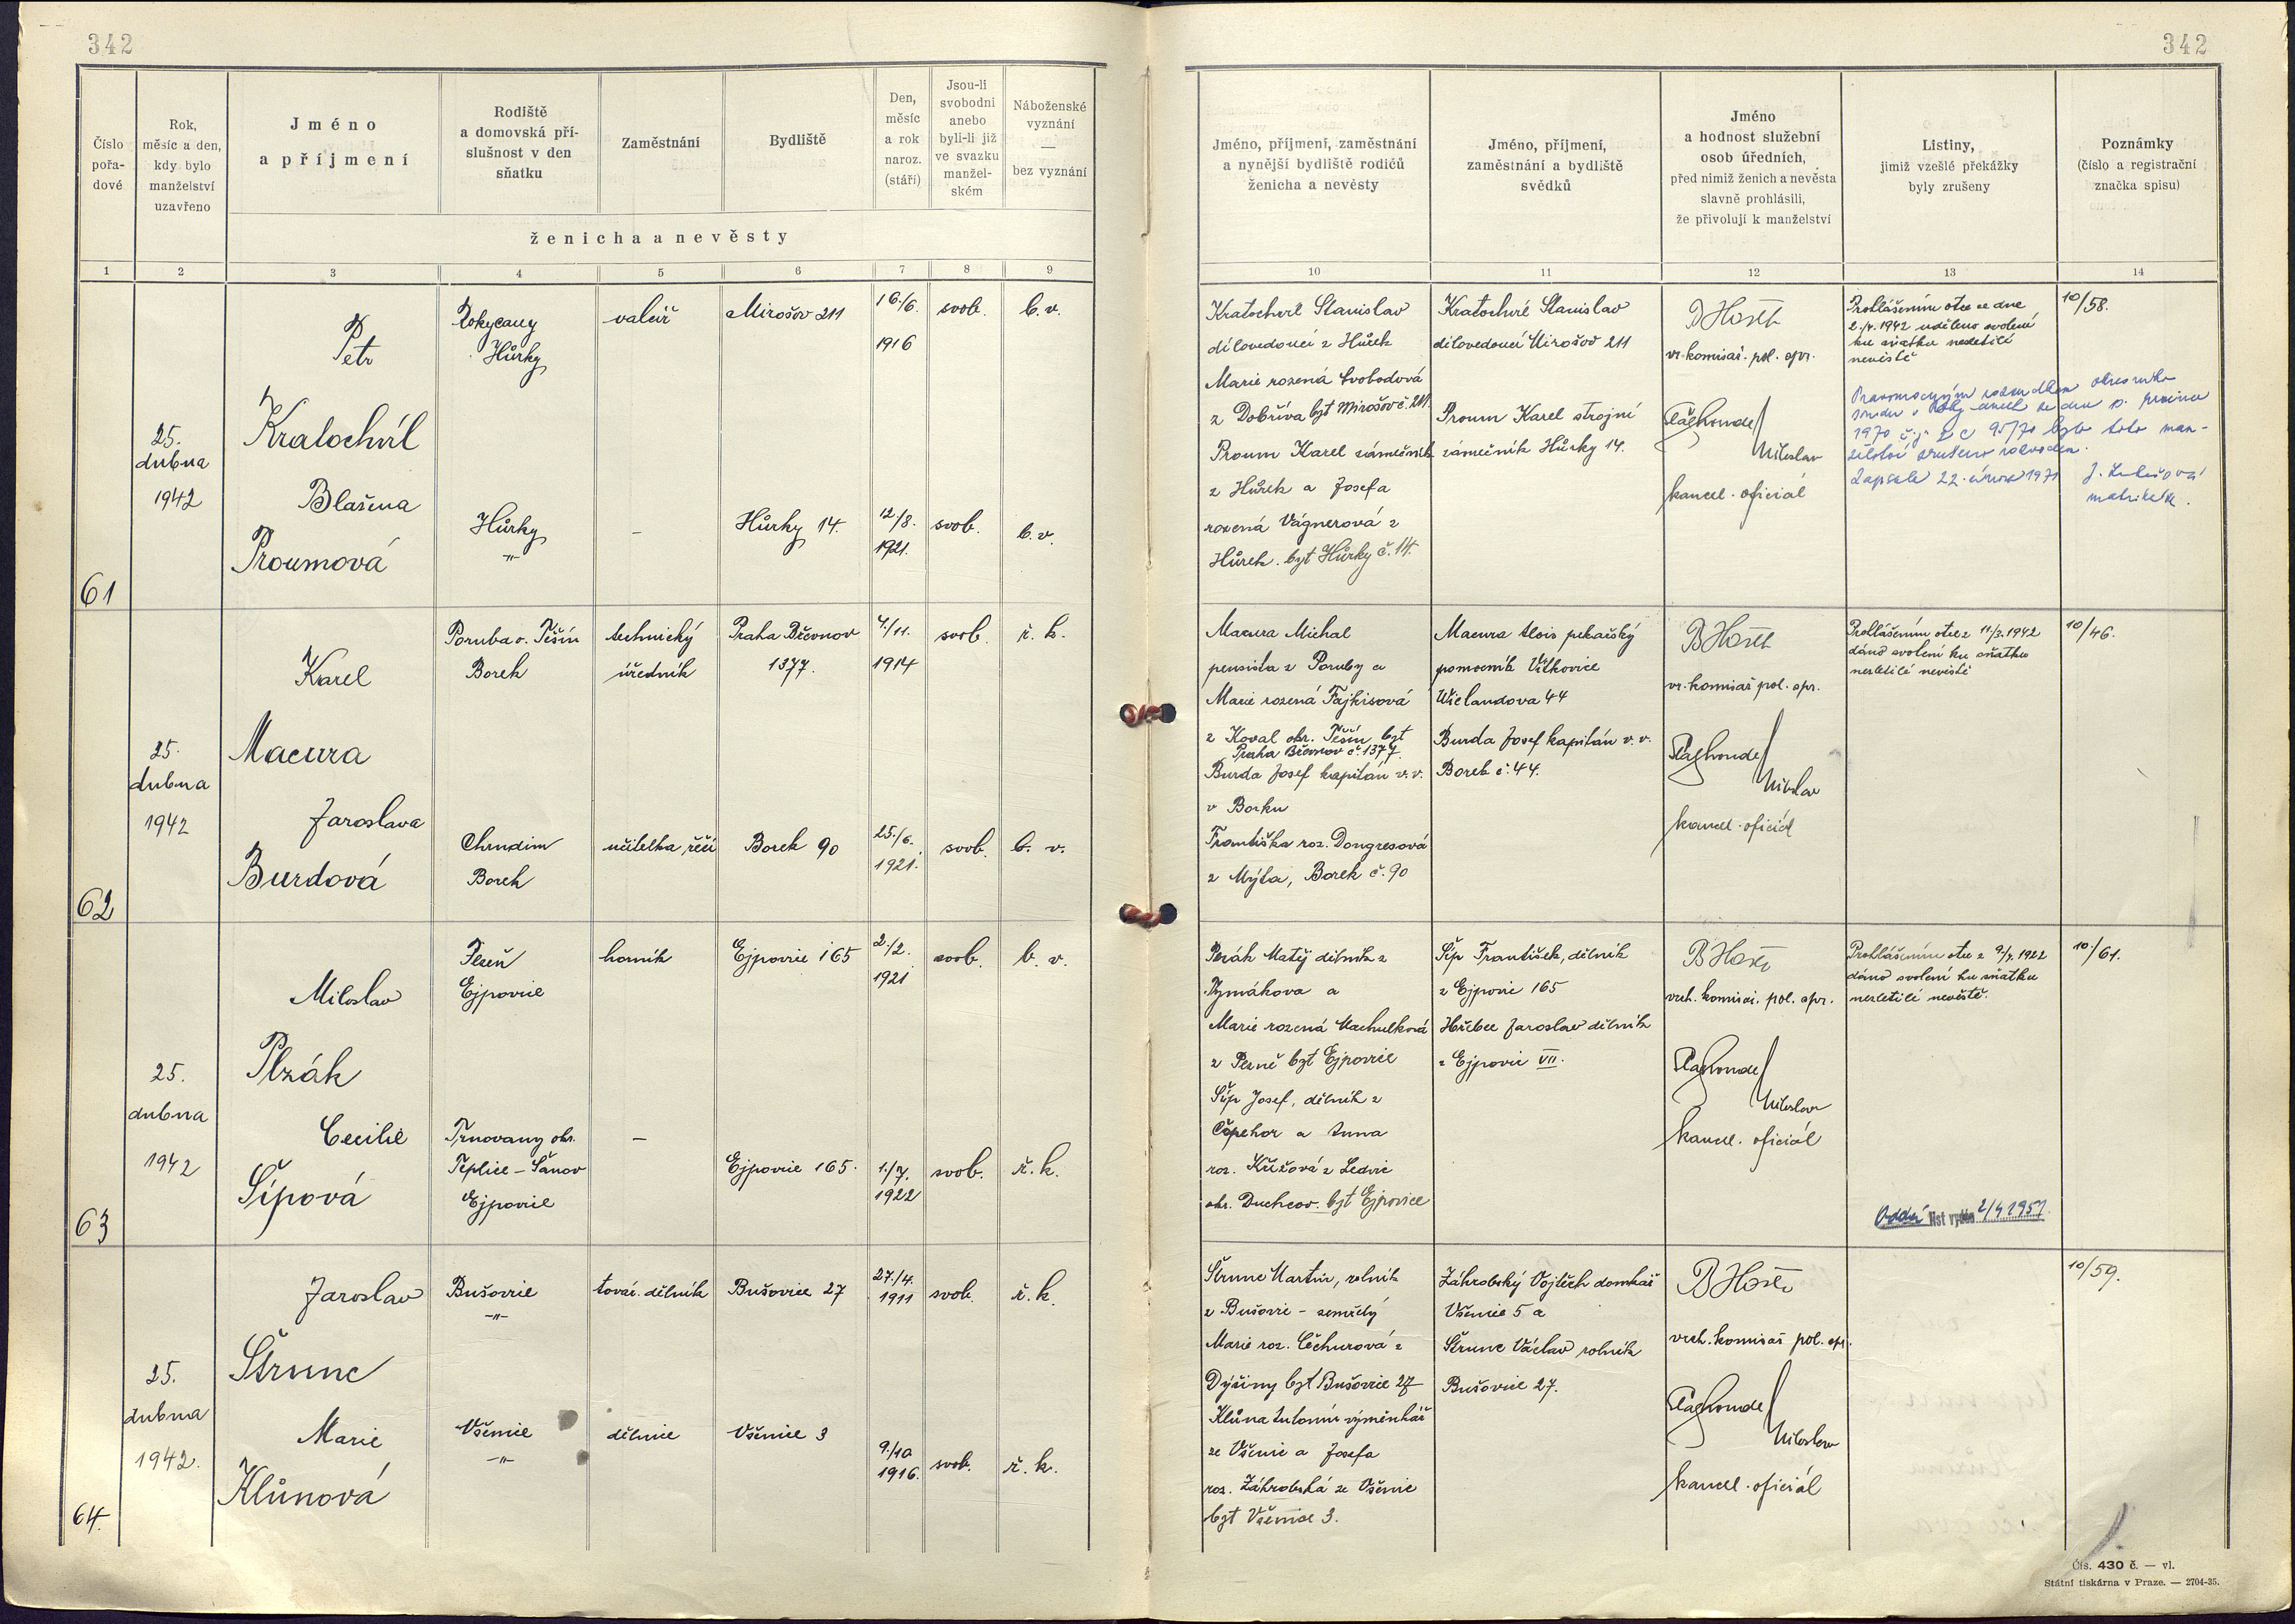 342
342
Číslo
pořa-
dové
Rok,
měsíc a den,
kdy bylo
manželství
uzavřeno
Jméno
a příjmení
Rodiště
a domovská pří-
slušnost v den
sňatku
Zaměstnání
Bydliště
Den,
měsíc
a rok
naroz.
(stáří)
Jsou-li
svobodni
anebo
byli-li již
ve svazku
manžel-
ském
Náboženské
vyznání
—
bez vyznání
ženicha a nevěsty
Jméno, příjmení, zaměstnání
a nynější bydliště rodičů
ženicha a nevěsty
Jméno, příjmení,
zaměstnání a bydliště
svědků
Jméno
a hodnost služební
osob úředních,
před nimiž ženich a nevěsta
slavně prohlásili,
že přivolují k manželství
Listiny,
jimiž vzešlé překážky
byly zrušeny
Poznámky
(číslo a registrační
značka spisu)
1 2 3 4 5 6 7 8 9
10 11 12 13 14
61
25.
dubna
1942
Petr
Kratochvíl
Rokycany
Hůrky
valcíř
Mirošov 211
16./6.
1916
svob.
b. v.
Blažena
Proumová
Hůrky
-"-
-
Hůrky 14.
12./8.
1921.
svob.
b. v.
Kratochvíl Stanislav
dílovedoucí z Hůrek
Marie rozená Svobodová
z Dobříva byt Mirošov č. 211.
Proum Karel zámečník
z Hůrek a Josefa
rozená Vágnerová z
Hůrek. byt Hůrky č. 14.
Kratochvíl Stanislav
dílovedoucí Mirošov 211
Proum Karel strojní
zámečník Hůrky 14.
vr. komisař. pol. spr.
Miloslav
kancel. oficiál
Prohlášením otce ze dne
2./4. 1942 uděleno svolení
ku sňatku nezletilé
nevěstě
Pravomocným rozsudkem okresního
1970 č.j. 2 C 95/70 bylo toto man-
želství zrušeno rozvodem.
Zapsala 22. února 1971
matrikářk.
10/58.
62
25.
dubna
1942
Karel
Macura
Poruba o. Těšín
Borek
technický
úředník
Praha Břevnov
1377.
4/11.
1914
svob.
ř. k.
Jaroslava
Burdová
Chrudim
Borek
učitelka řečí
Borek 90
25./6.
1921.
svob.
b. v.
Macura Michal
pensista z Poruby a
Marie rozená Fajkisová
z Koval okr. Těšín byt
Praha Břevnov č. 1377.
Burda Josef kapitán v. v.
v Borku
Františka roz. Dongresová
z Mýta, Borek č. 90
Macura Alois pekařský
pomocník Vítkovice
Wielandova 44
Burda Josef kapitán v. v.
Borek č. 44.
vr. komisař pol. spr.
Miloslav
kancel. oficiál
Prohlášením otce z 11/3. 1942
dáno svolení ku sňatku
nezletilé nevěstě
10/46.
63
25.
dubna
1942
Miloslav
Plzák
Plzeň
Ejpovice
horník
Ejpovice 165
2./2.
1921
svob.
b. v.
Cecilie
Šípová
Trnovany okr.
Teplice - Šanov
Ejpovice
-
Ejpovice 165.
1./7.
1922
svob.
ř. k.
Plzák Matěj dělník z
Rymákova a
Marie rozená Machulková
z Plzně byt Ejpovice
Šíp Josef, dělník z
Čepehor a Anna
roz. Křížová z Ledvic
okr. Duchcov. byt Ejpovice
Šíp František, dělník
z Ejpovic 165
Hřebec Jaroslav dělník
z Ejpovic VII.
vrch. komisař. pol. spr.
Miloslav
kancel. oficiál
Prohlášením otce z 9/4. 1922
dáno svolení ku sňatku
nezletilé nevěstě.
Oddací list vydán 2/4 1951.
10/61.
64.
25.
dubna
1942.
Jaroslav
Štrunc
Bušovice
-"-
továr. dělník
Bušovice 27
27./4.
1911
svob.
ř. k.
Marie
Klůnová
Všenice
-"-
dělnice
Všenice 3
9./10
1916.
svob.
ř. k.
Štrunc Martin, rolník
z Bušovic - zemřelý
Marie roz. Čechurová z
Dýšiny byt Bušovice 27
Klůna Antonín výměnkář
ze Všenic a Josefa
roz. Záhrobská ze Všenic
byt Všenice 3.
Záhrobský Vojtěch domkář
Všenice 5 a
Štrunc Václav rolník
Bušovice 27.
vrch. komisař pol. spr.
Miloslav
kancel. oficiál
10/59.
Čís. 430 č. — vl.
Státní tiskárna v Praze. — 2704-35.